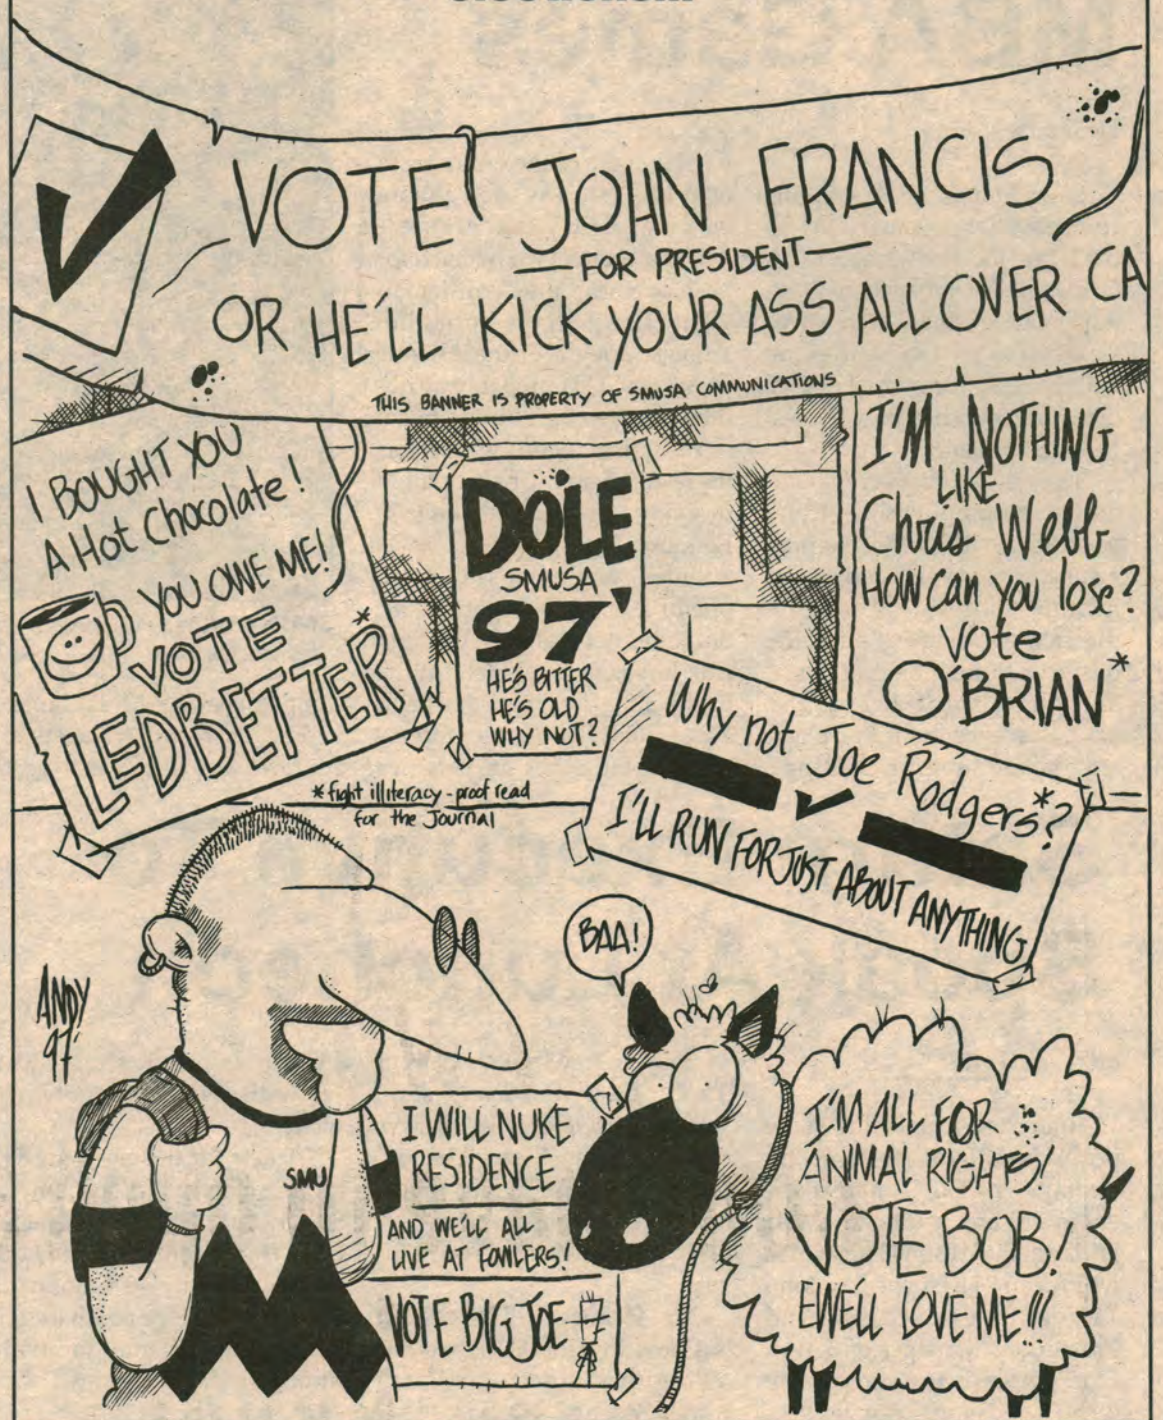 VOTE JOHN FRANCIS
— FOR PRESIDENT —
OR HE'LL KICK YOUR ASS ALL OVER CA
THIS BANNER IS PROPERTY OF SMUSA COMMUNICATIONS
I BOUGHT YOU
A Hot Chocolate!
YOU OWE ME!
VOTE
LEDBETTER*
DOLE
SMUSA
97'
HE'S BITTER
HE'S OLD
WHY NOT?
I'M NOTHING
LIKE
Chris Webb
HOW Can you lose?
vote
O'BRIAN*
Why not Joe Rodgers*?
I'LL RUN FOR JUST ABOUT ANYTHING
* fight illiteracy - proof read
for the Journal
BAA!
ANDY
97
SMU
I WILL NUKE
RESIDENCE
AND WE'LL ALL
LIVE AT FOWLERS!
VOTE BIG JOE
I'M ALL FOR
ANIMAL RIGHTS!
VOTE BOB!
EWE'LL LOVE ME!!!